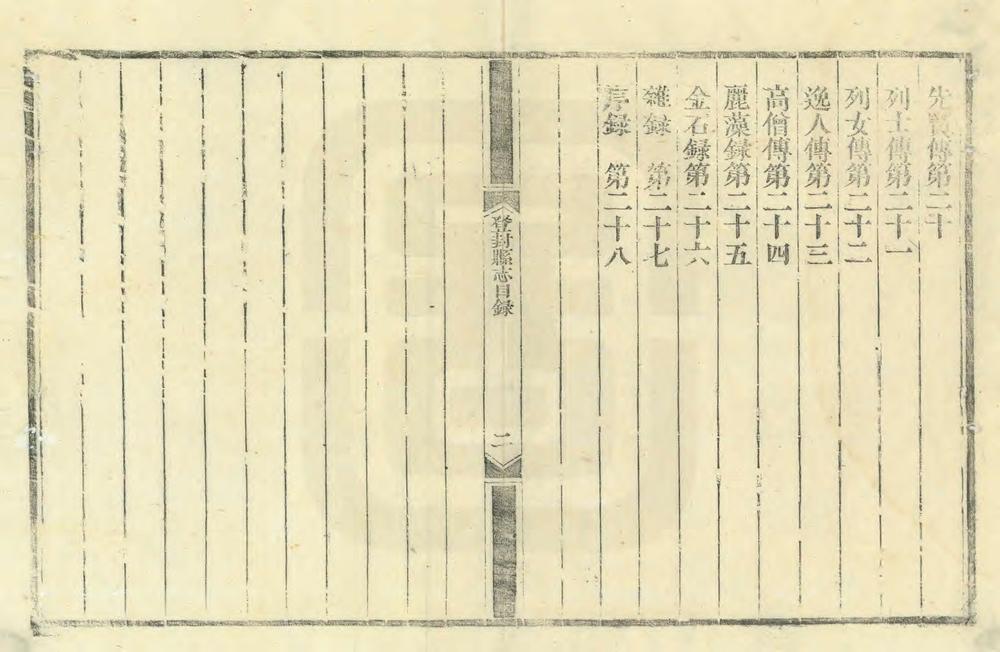 先賢傳第二十
列士傳第二十一
列女傳第二十二
逸人傳第二十三
高僧傳第二十四
麗藻録第二十五
金石録第二十六
雜録　第二十七
序録　第二十八
登封縣志目録
二